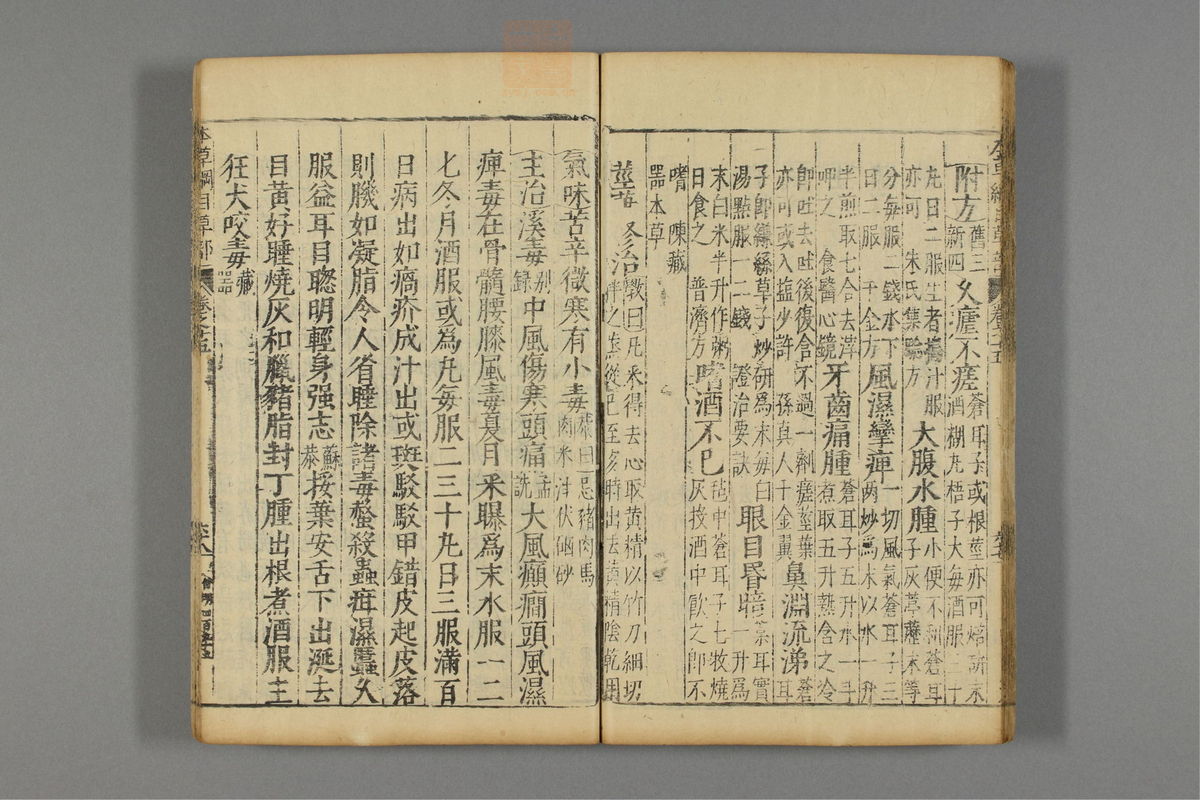 附方舊三新四久瘧不瘥蒼耳子或根莖亦可焙研末酒糊丸梧子大每酒服三十
丸日二服生者搗汁服亦可朱氏集驗方大腹水腫小便不利蒼耳子灰葶藶末等
分每服二錢水下日二服千金方風濕攣痺一切風氣蒼耳子三兩炒為末以水一升
半煎取七合去滓呷之食醫心鏡牙齒痛腫蒼耳子五升水一斗煮取五升熱含之冷
即吐去吐後復含不過一劑瘥莖葉亦可或入鹽少許孫真人千金翼鼻淵流涕蒼耳
子即縑絲草子炒研為末每白湯點服一二錢證治要訣眼目昏暗葈耳實一升為
末白米半升作粥日食之普濟方嗜酒不已氊中蒼耳子七枚燒灰投酒中飲之即不
嗜陳藏器本草
莖葉修治斅曰凡采得去心取黃精以竹刀細切拌之蒸從巳至亥時出去黃精陰乾用
氣味苦辛微寒有小毒恭曰忌豬肉馬肉米泔伏硇砂
主治溪毒別錄中風傷寒頭痛孟詵大風癲癇頭風濕
痺毒在骨髓腰膝風毒夏月采曝為末水服一二
匕冬月酒服或為丸每服二三十丸日三服滿百
日病出如瘑疥或癢汁出或斑駁甲錯皮起皮落
則肌如凝脂令人省睡除諸毒螫殺蟲疳濕䘌久
服益耳目聰明輕身强志蘇恭挼葉安舌下出涎去
目黃好睡燒灰和臘豬脂封丁腫出根煮酒服主
狂犬咬毒藏器
本草綱目草部 卷之十五